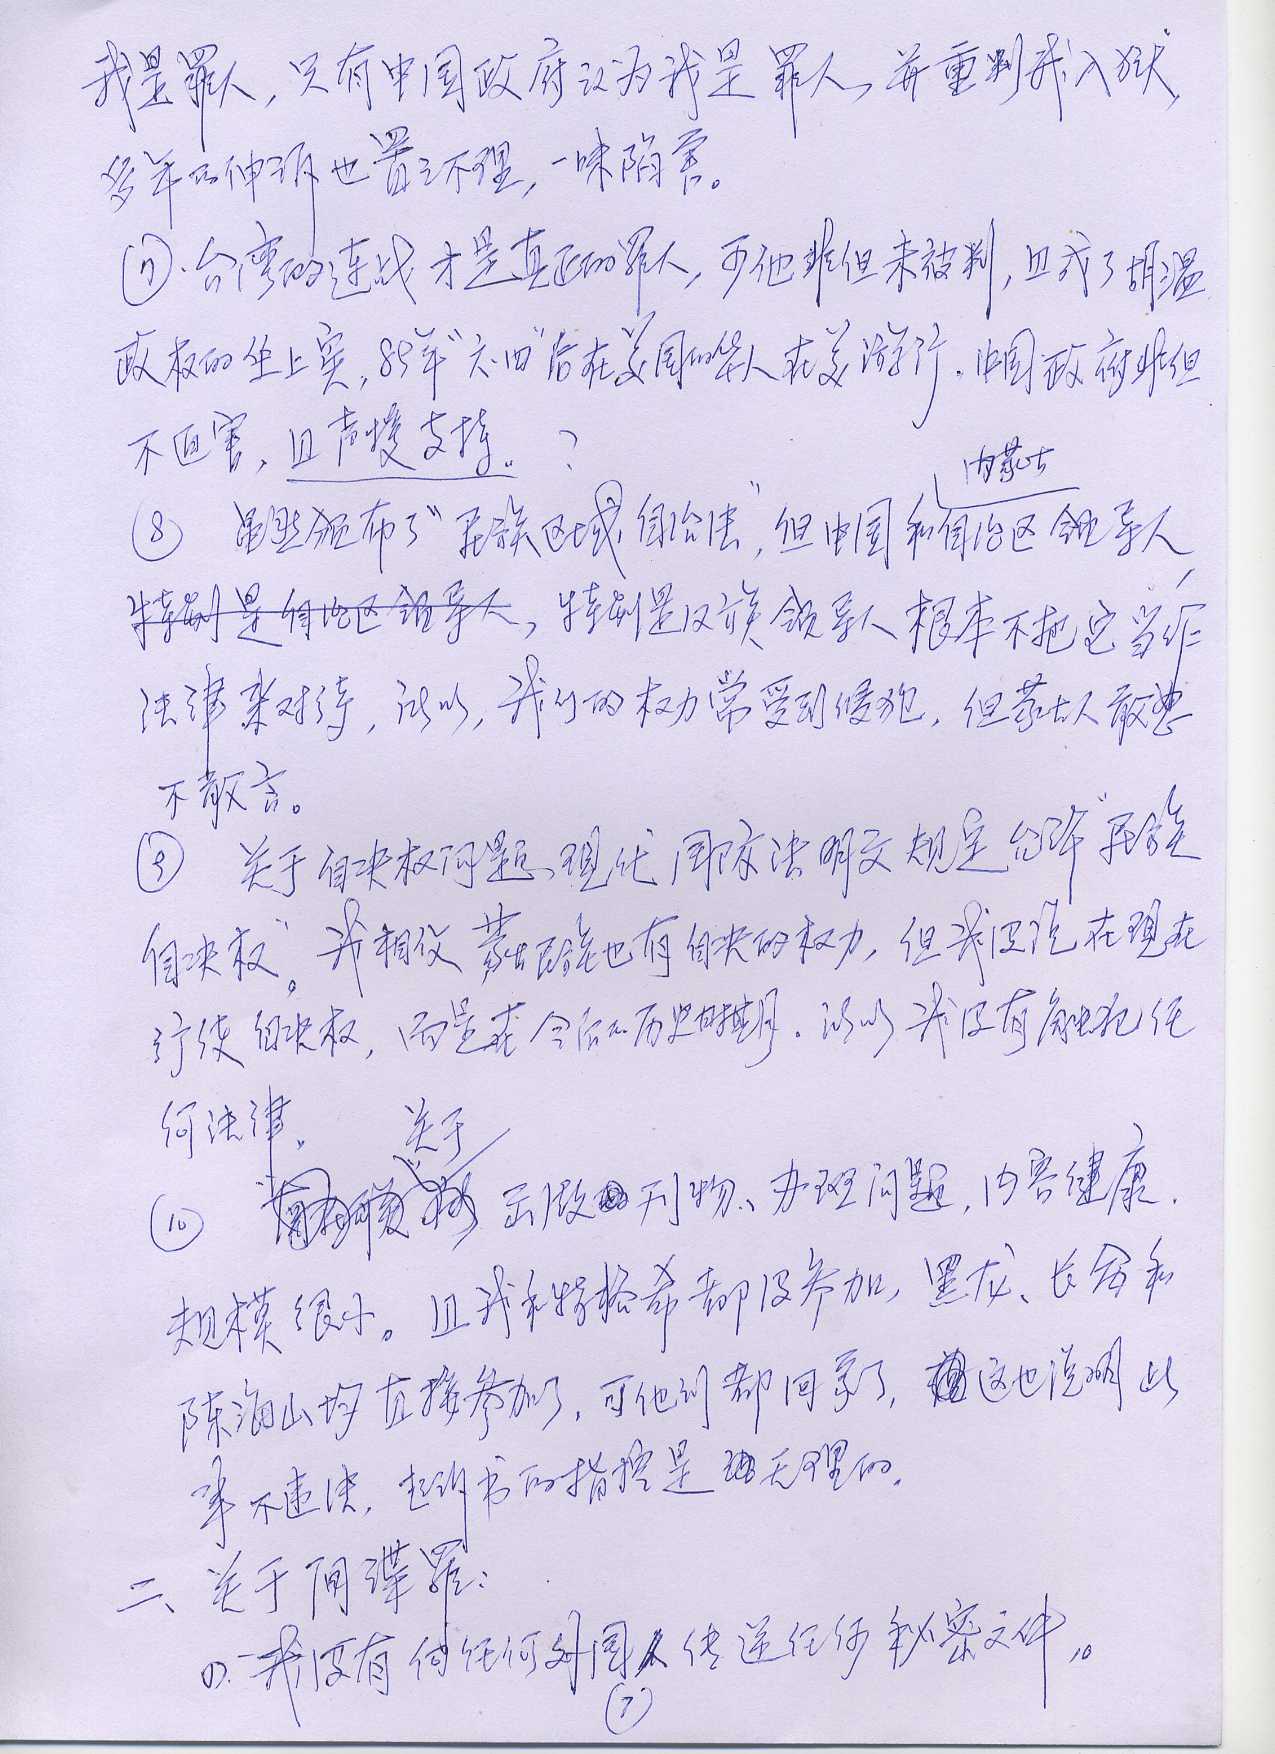 我是罪人，只有中国政府认为我是罪人，并重判我入狱，
多年的申诉也置之不理，一味陷害。
⑦、台湾的连战才是真正的罪人，可他非但未被判，且成了胡温
政权的坐上宾，89年“六四”后在美国的华人在美游行，中国政府非但
不迫害，且声援支持。？
内蒙古
⑧ 虽然颁布了“民族区域自治法”，但中国和自治区领导人，
特别是自治区领导人，特别是汉族领导人根本不把它当作
法律来对待，所以，我们的权力常受到侵犯，但蒙古人敢怒
不敢言。
⑨ 关于自决权问题、现代国际法明文规定允许“民族
自决权”。我相仪蒙古民族也有自决的权力，但我没说在现在
行使自决权，而是在今后的历史时期。所以我没有触犯任
何法律。
关于
⑩ 出版刊物、办班问题，内容健康．
规模很小。且我和特格希都没参加，黑龙、长命和
陈海山均直接参加了，可他们都回家了，这也说明此
事不违法，起诉书的指控是无理的。
二、关于间谍罪：
①．我没有向任何外国人传送任何秘密文件，。
⑦